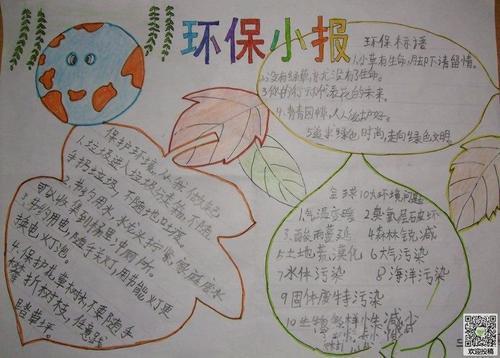 环保小报
环保标语
1.小草有生命,脚下请留情。
2.没有绿草,也就没有了生命。
3.你的行动代表花的未来。
4.青青园草,人人爱护好。
5.追求绿色时尚,走向绿色文明
保护环境从我做起
1.垃圾进入垃圾分类箱,不随
手扔垃圾,不随地吐痰。
2.节约用水,水龙头拧紧
可以收集到桶里冲厕所。
3.节约用电,随手关灯,用节能灯更
换电灯泡。
4.保护花草树林不要随手
攀折树枝,任意践
踏草坪。
全球10大环境问题
1.气温变暖 2.臭氧层破坏
3.酸雨蔓延 4.森林锐减
5.土地荒漠化 6.大气污染
7.水体污染 8.海洋污染
9.固体废物污染
10.生物多样性减少
欢迎投稿